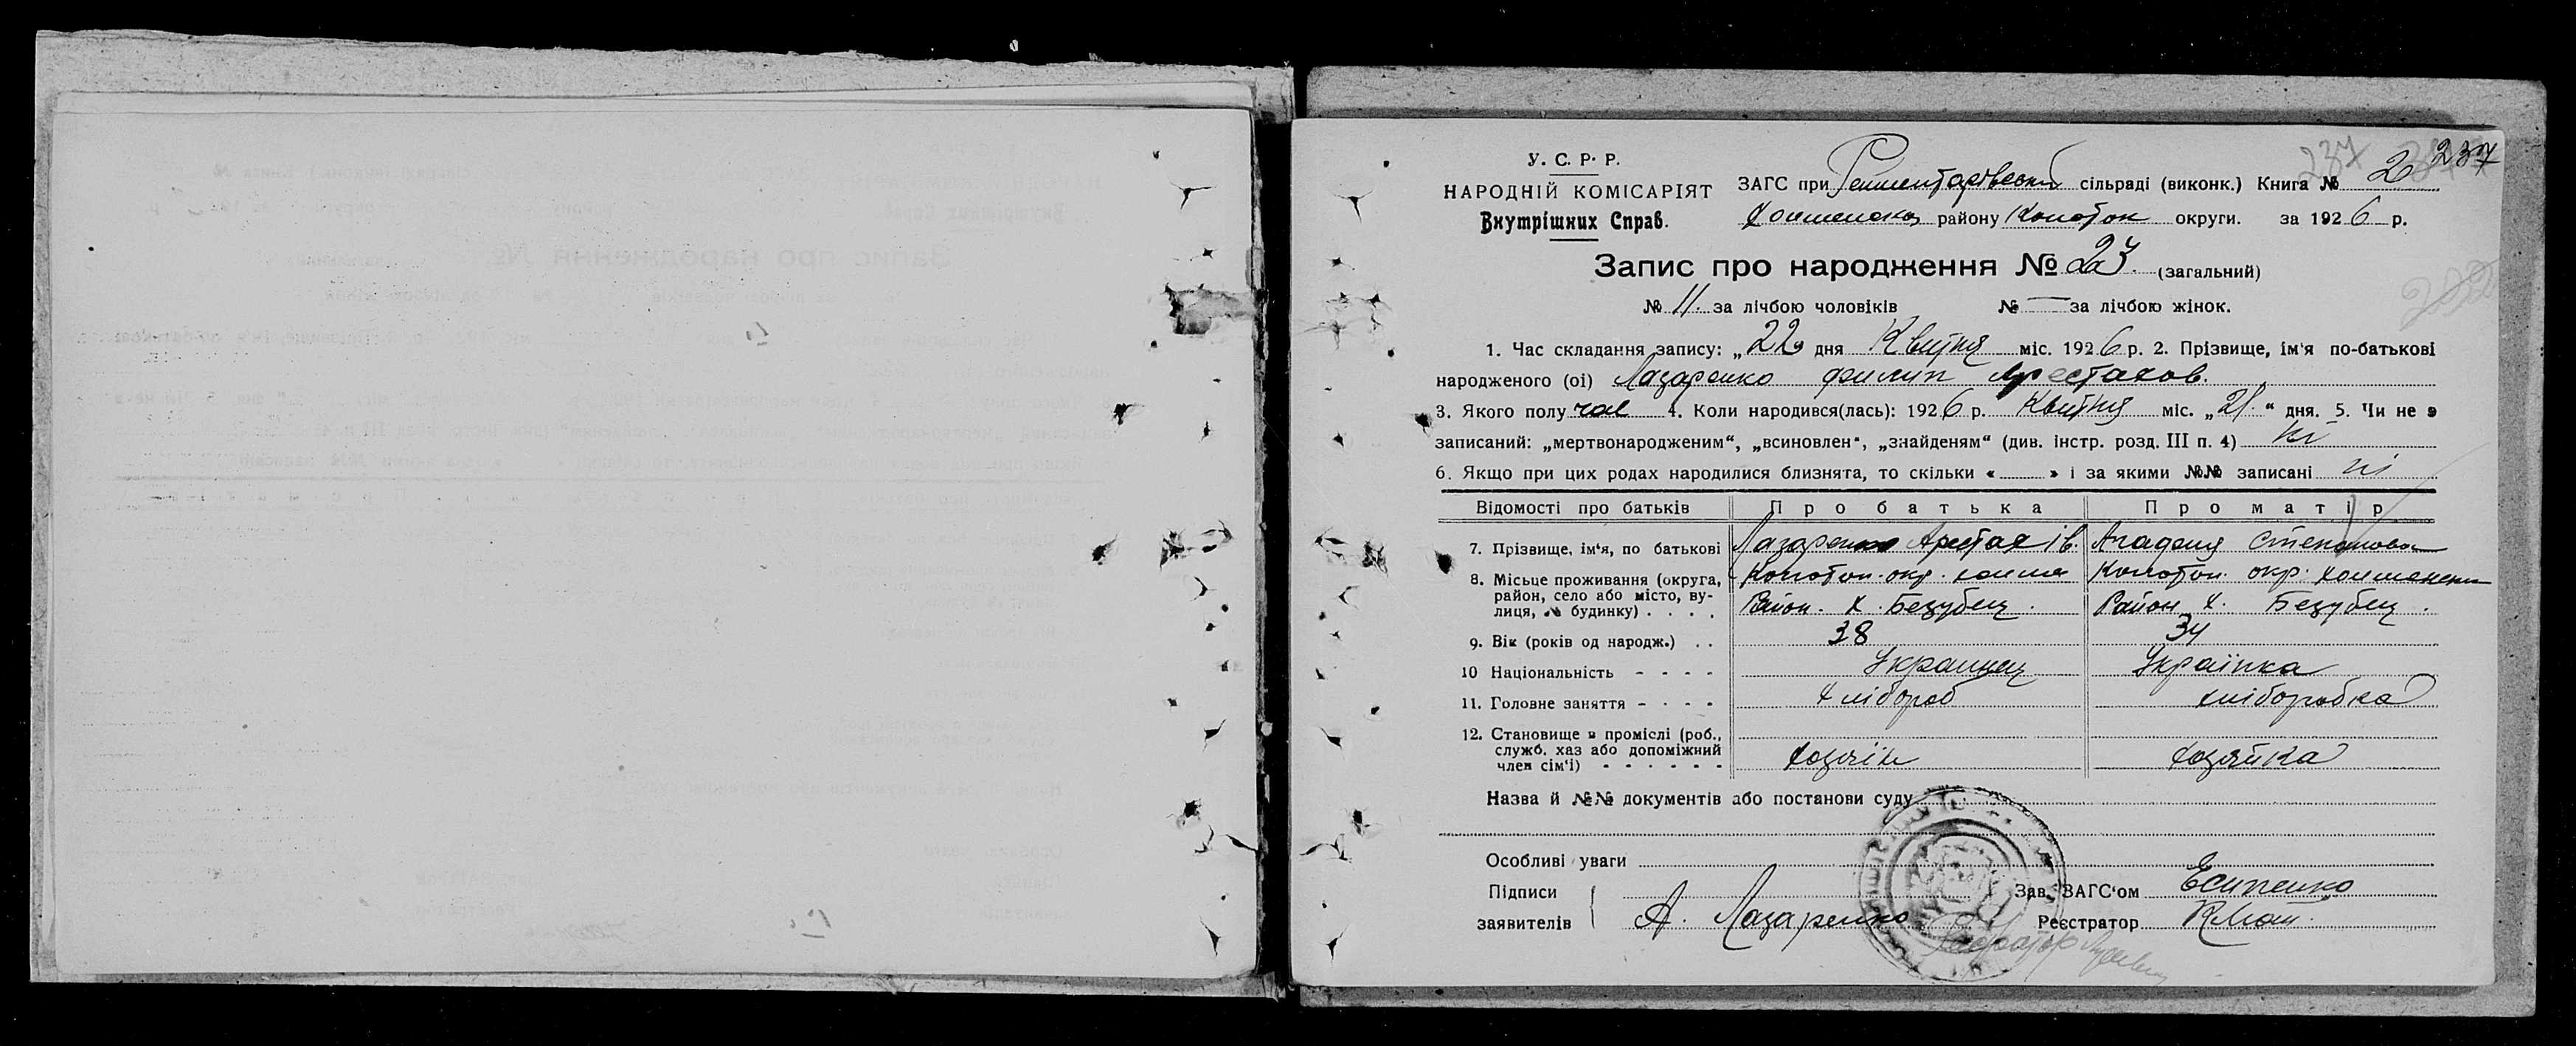 237
У. С. Р. Р.
НАРОДНІЙ КОМІСАРІЯТ
Внутрішних Справ.
ЗАГС при Рементарівській сільраді (виконк.) Книга № 2 237
району Конотоп округи. за 1926 р.
Запис про народження № 23. (загальний)
№ 11. за лічбою чоловіків № — за лічбою жінок.
1. Час складання запису: „22" дня Квітня міс. 1926 р. 2. Прізвище, ім'я по-батькові
народженого (ої) Лазаренко Филип Арестахов.
3. Якого полу чол 4. Коли народився(лась): 1926 р. Квітня міс. „21." дня. 5. Чи не э
записаний: „мертвонародженим", „всиновлен", „знайденям" (див. інстр. розд. III п. 4) ні
6. Якщо при цих родах народилися близнята, то скільки « » і за якими №№ записані ні
Відомості про батьків Про батька Про матір
7. Прізвище, ім'я, по батькові Лазаренко Арестах Ів. Агафія Степанова
8. Місьце проживання (округа, район, село або місто, вулиця, № будинку) . . . . Конотоп. окр. Конотоп. окр.
Район. х. Безубец. Район х. Безубец.
9. Вік (років од народж.) . . 38 34
10 Національність - - - - Украинец Українка
11. Головне заняття - - - - Хлібороб хліборобка
12. Становище в проміслі (роб., служб. хаз або допоміжний член сім'ї) - - - - - - Хозяїн Хозяйка
Назва й №№ документів або постанови суду
Особливі уваги
Підписи заявителів А. Лазаренко
Зав. ЗАГС'ом Есипенко
Реєстратор